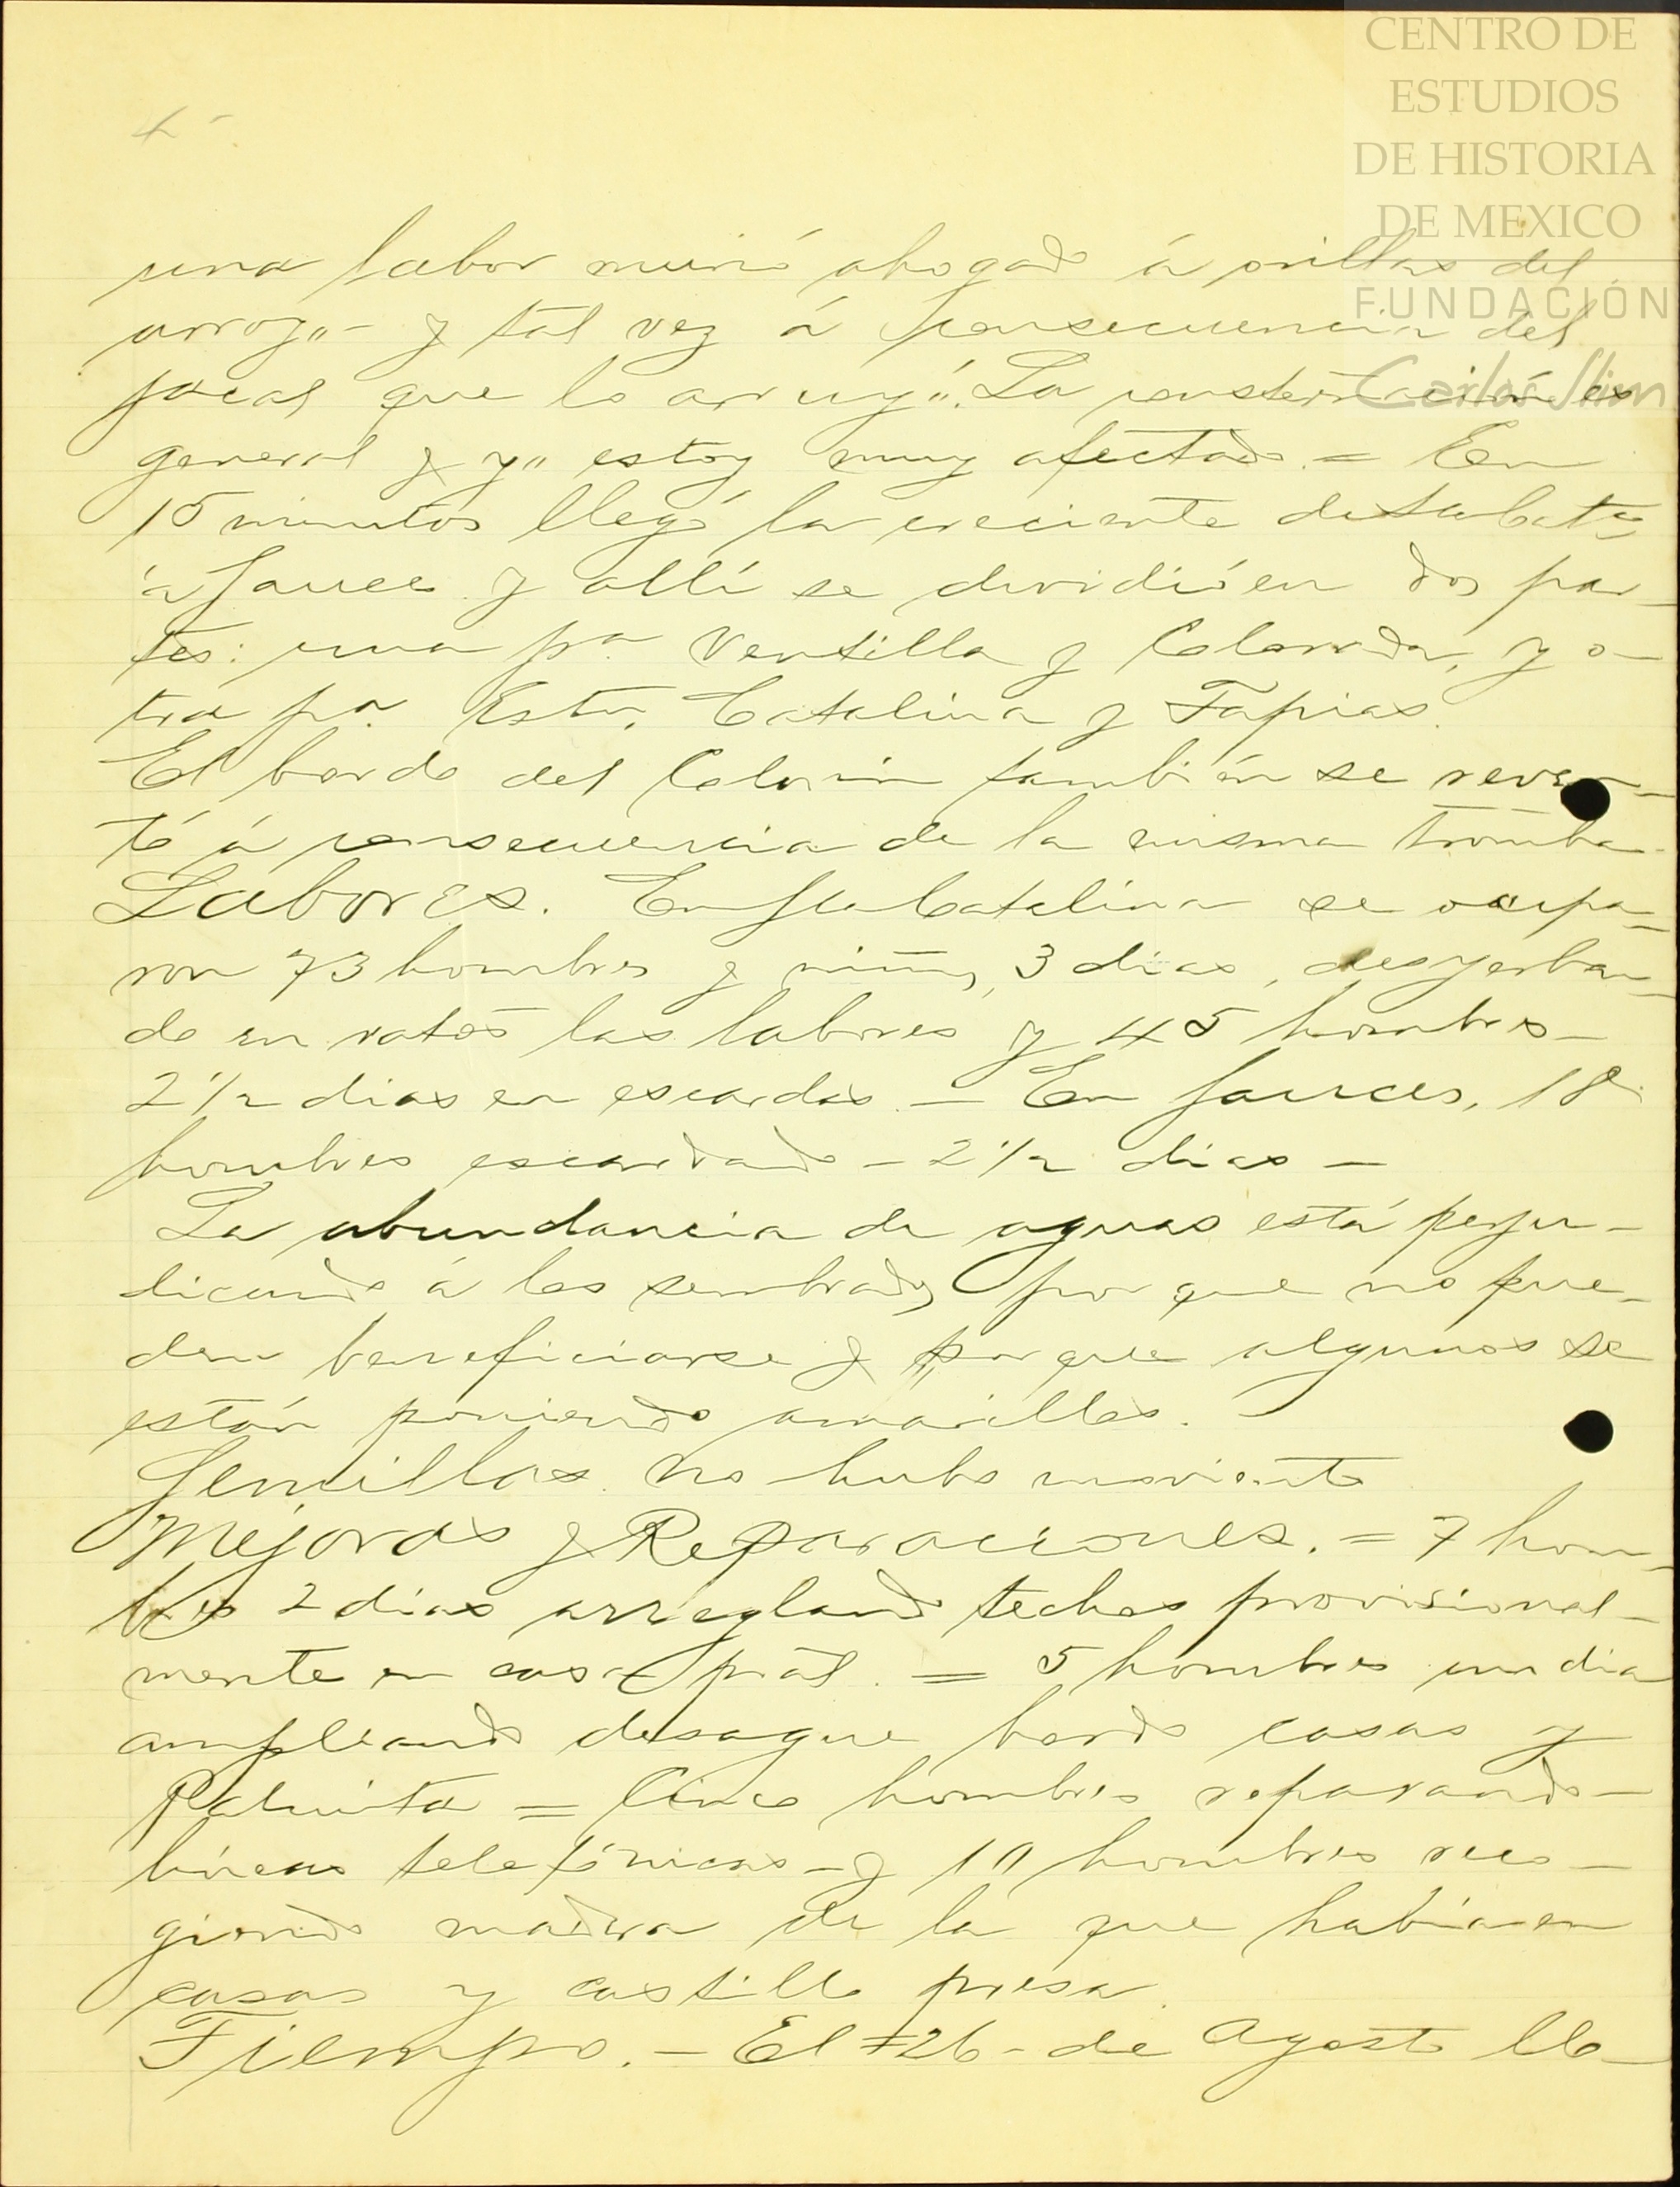 CENTRO DE
ESTUDIOS
DE HISTORIA
DE MEXICO
FUNDACIÓN
Carlos Slim
4-
una labor murió ahogado á orillas del
arroyo- y tal vez á consecuencia del
jacal que lo arruyó. La consternación es
general y yo estoy muy afectado. = En
15 minutos llegó la creciente de
á Sauces y allí se dividió en dos par-
tes: una pa. Ventilla y Colorada, y o-
tra pa. Esta. Catalina y Tapias.
El bordo del Colorin también se reven-
tó á consecuencia de la misma tromba.
Labores. En Sta Catalina se ocupa-
ron 73 hombres y niños, 3 dias, desyerban-
do en ratos las labores y 45 hombres-
2 1/2 dias en escardas. - En Sauces, 18
hombres escardando - 2 1/2 dias -
La abundancia de aguas está perju-
dicando á los sembrados por que no pue-
den beneficiarse y porque algunos se
están poniendo amarillos. -
Semillas. No hubo moviento
Mejoras y Reparaciones. = 7 hom-
bres 2 dias arreglando techos provisional-
mente en casa pral. = 5 hombres un dia
ampleando desague bordo casas y
Palmita = Cinco hombres reparando-
líneas telefónicas - y 10 hombres reco-
giendo madera de la que había en
casas y castillo presa.
Tiempo. - El 26- de Agosto llo-